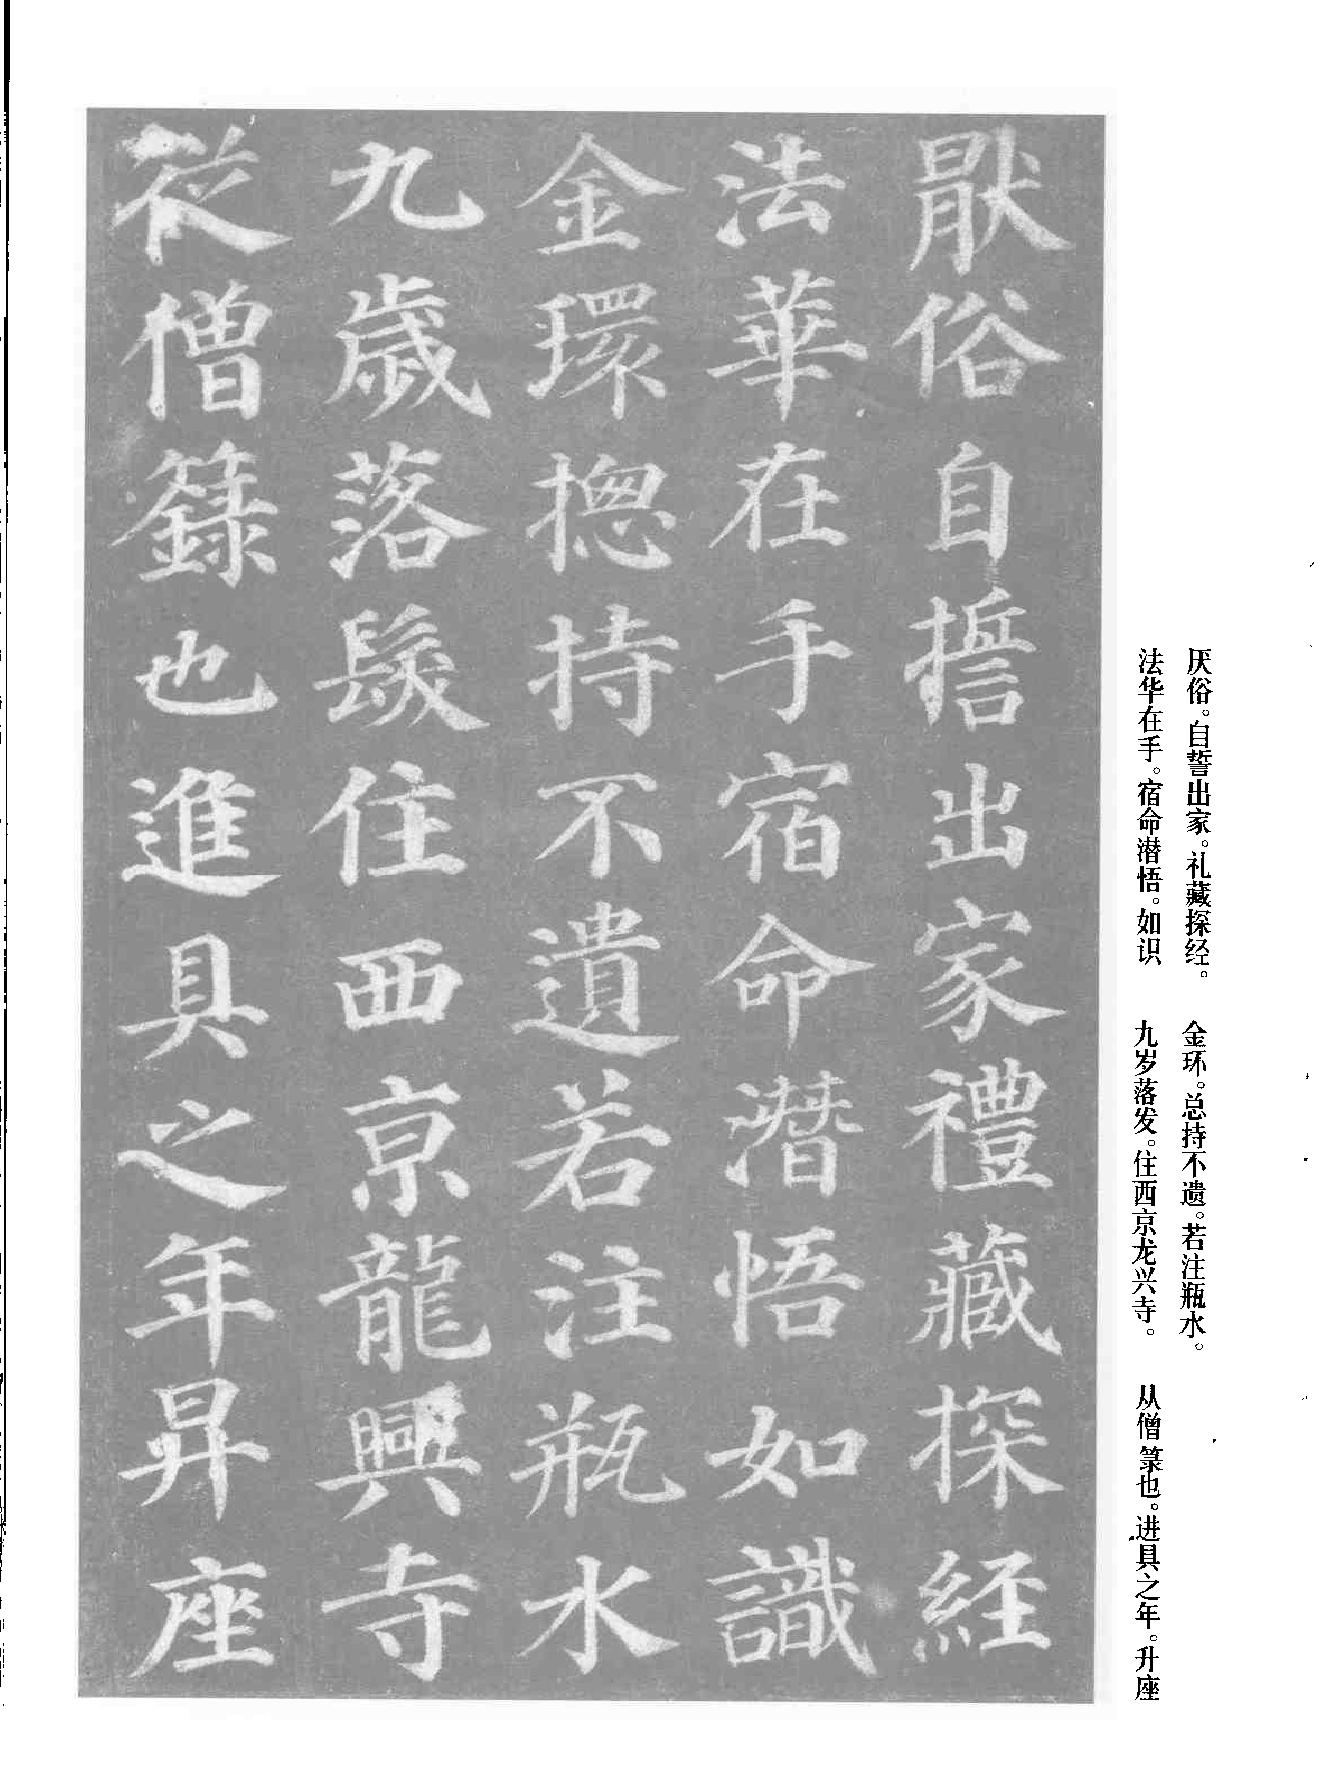 厭俗自誓出家禮藏探經
法華在手宿命潛悟如識
金環揔持不遺若注瓶水
九歲落髮住西京龍興寺
從僧籙也進具之年昇座
厌俗。自誓出家。礼藏探经。
法华在手。宿命潜悟。如识
金环。总持不遗。若注瓶水。
九岁落发。住西京龙兴寺。
从僧箓也。进具之年。升座